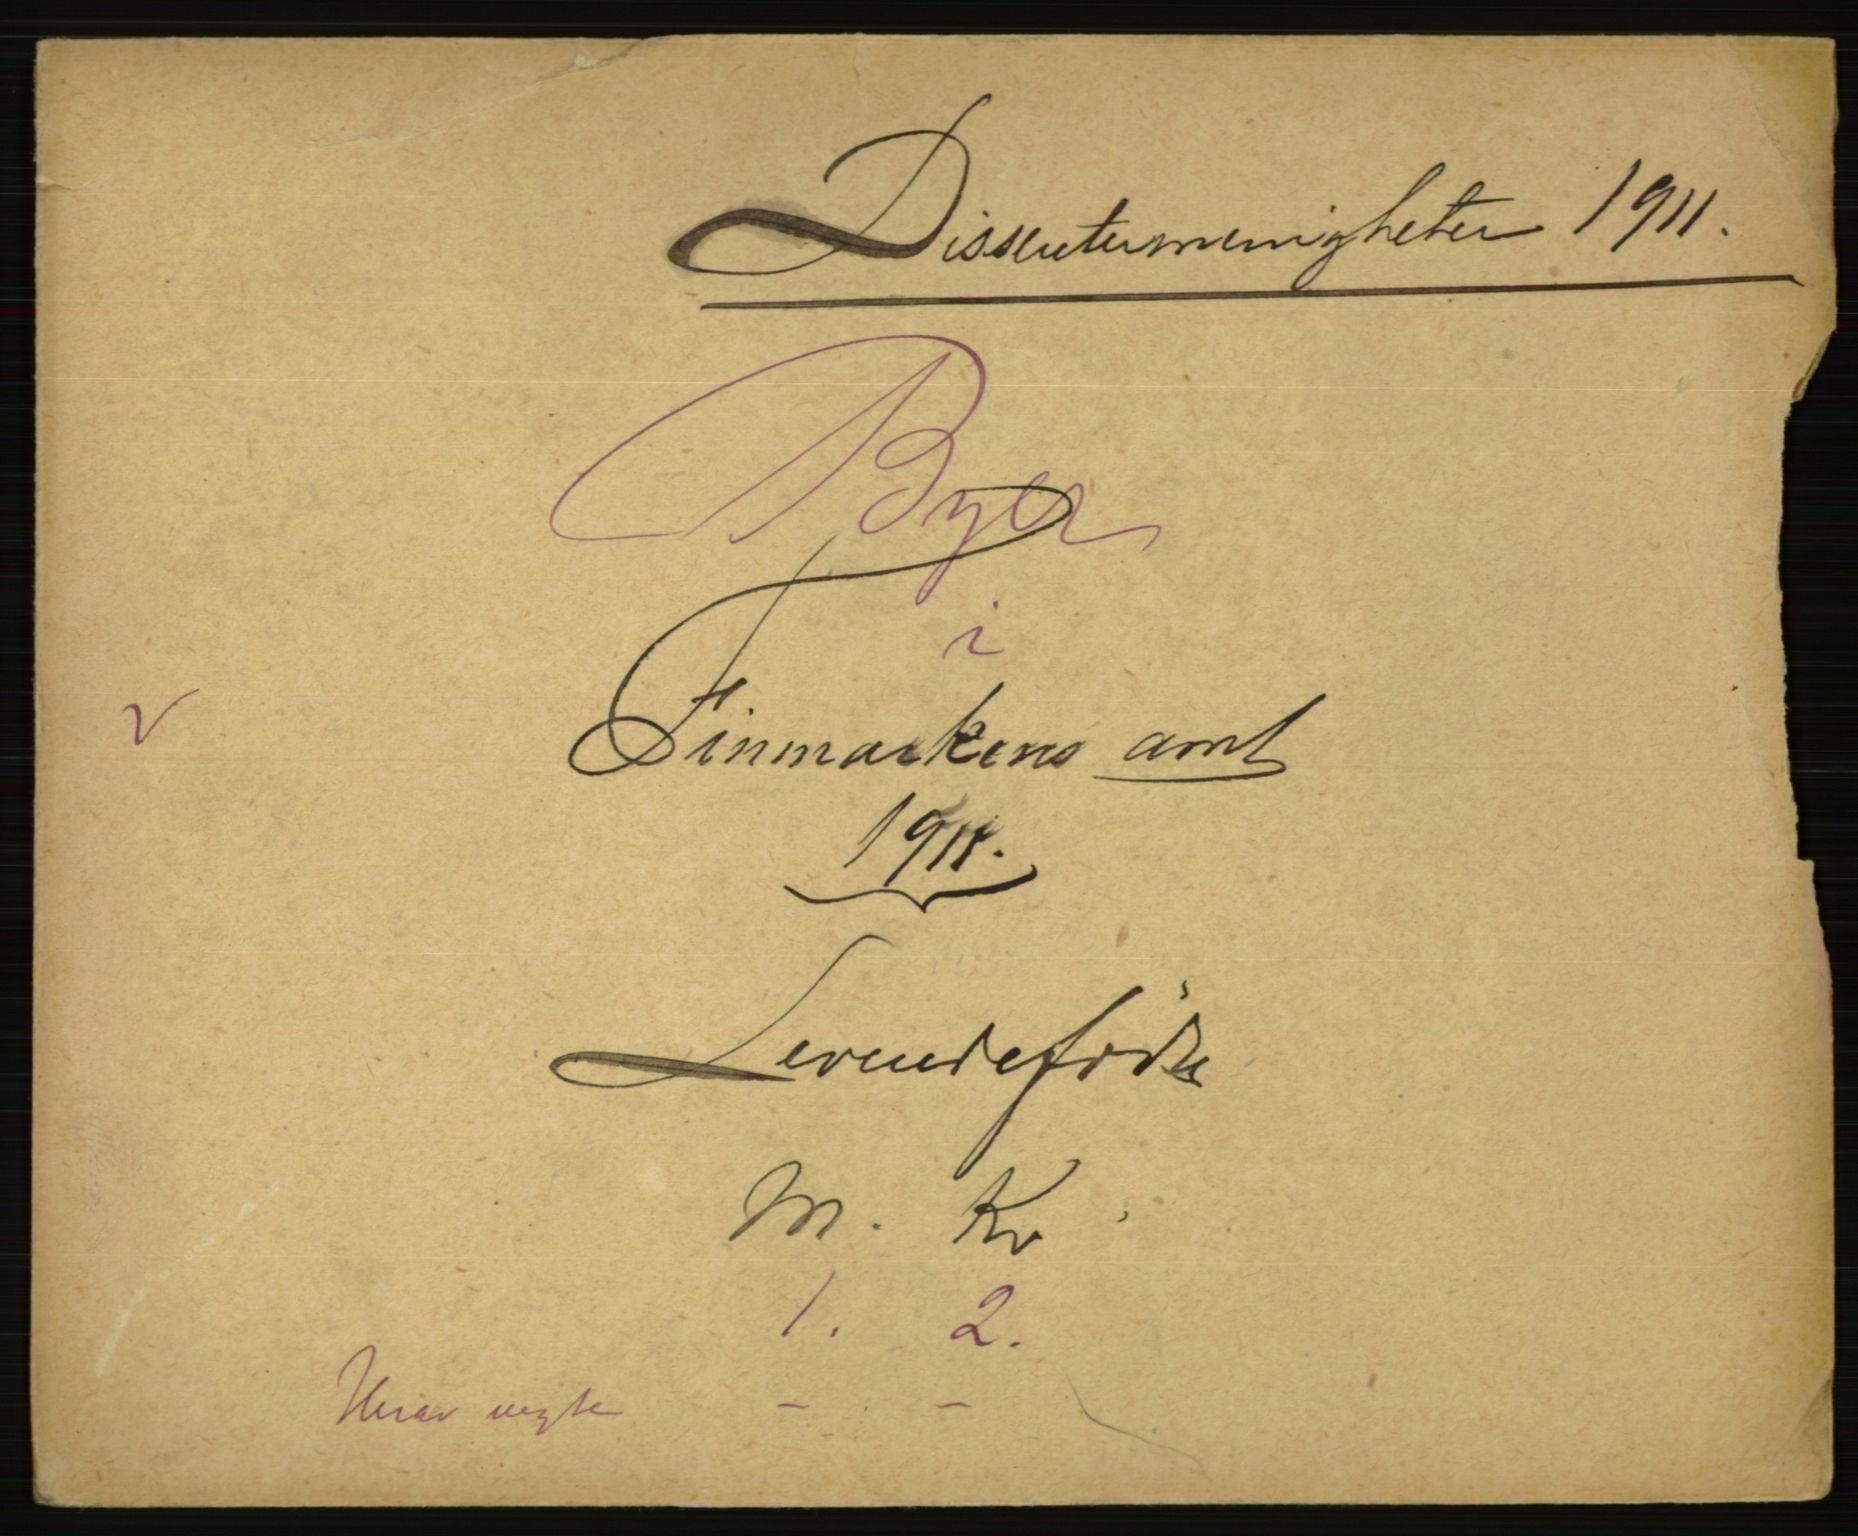 Dissentermenigheter 1911.
Byer
i
Finmarkens amt
1911.
Levendefødte
M. Kv
1. 2.
Herav uegte - -